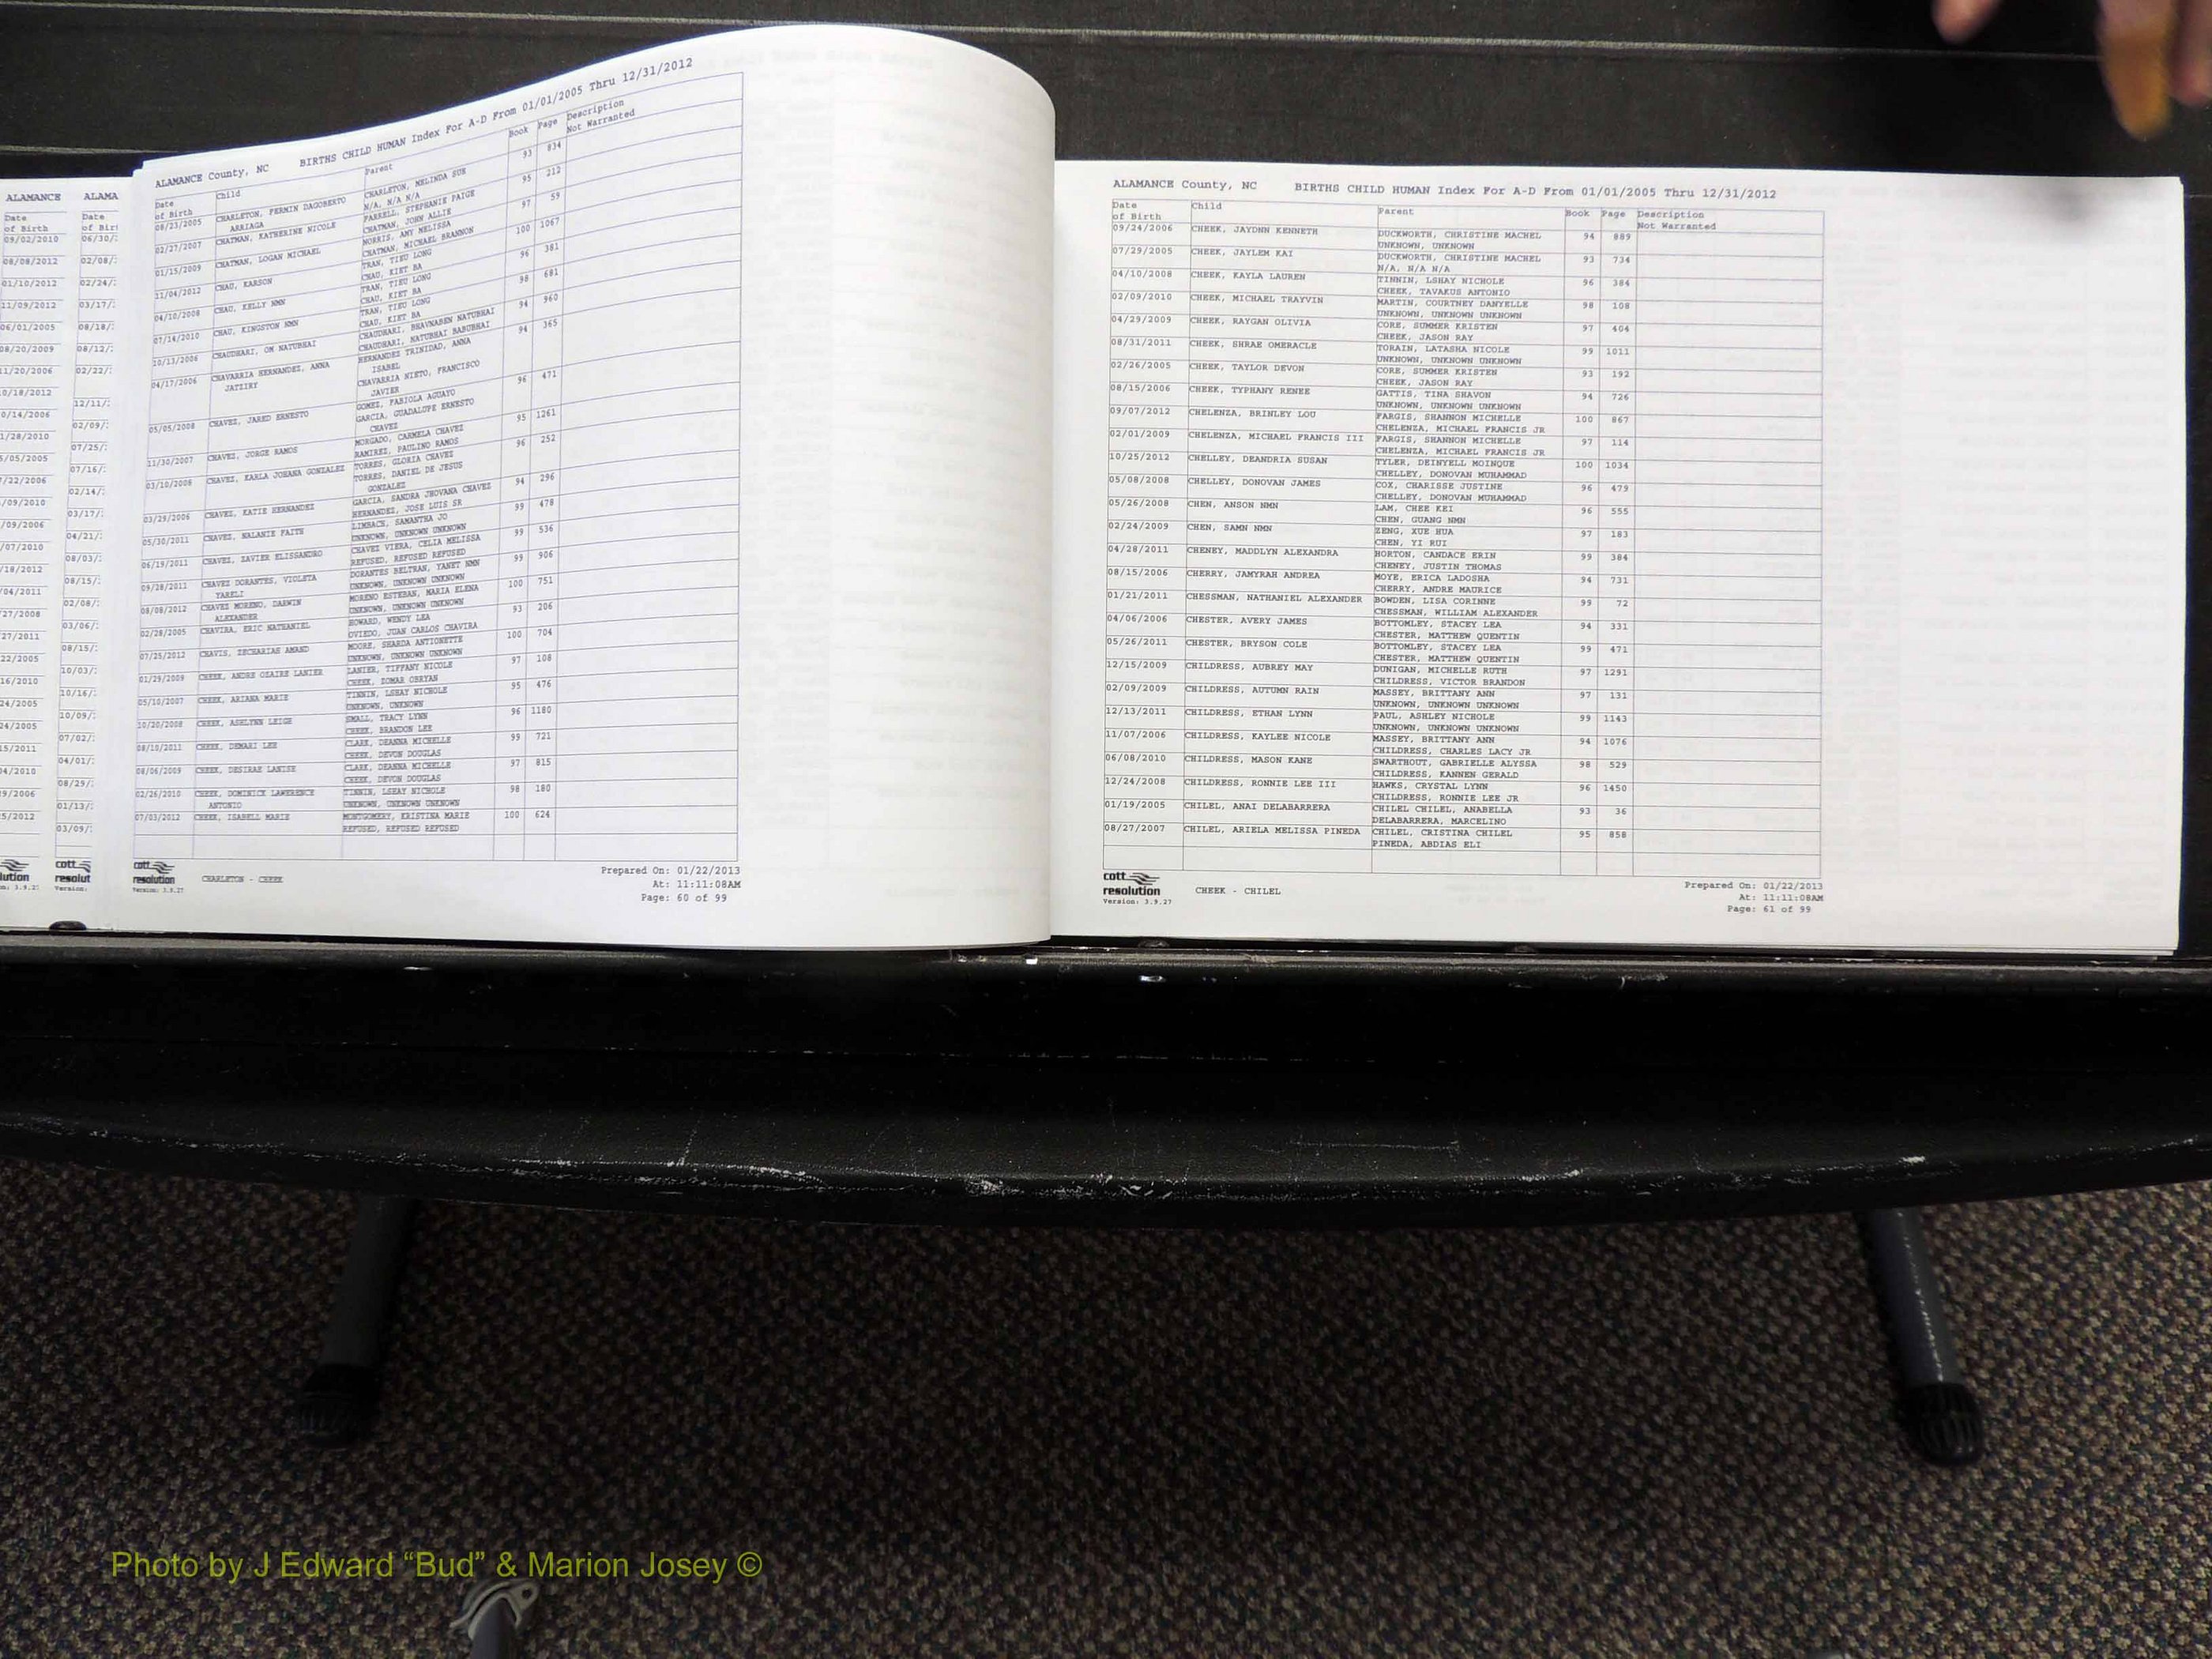 ALAMANCE
Date
of Birth
09/02/2010
08/08/2012
01/10/2012
11/09/2012
06/01/2005
08/20/2009
11/20/2006
ALAMA
Date
of Birt
06/30/
02/08/
02/24/
03/17/
08/18/
08/12/
02/22/
12/11/
02/09/
07/25/
07/16/
02/14/
03/17/
04/21/
08/03/
08/15/
02/08/
03/06/
08/15/
10/03/
10/16/
10/09/
07/02/
04/01/
08/29/
01/13/
03/09/
ALAMANCE County, NC BIRTHS CHILD HUMAN Index For A-D From 01/01/2005 Thru 12/31/2012
Date Child Parent Book Page Description
of Birth Not Warranted
08/23/2005 CHARLETON, FERMIN DAGOBERTO CHARLETON, MELINDA SUE 93 834
ARRIAGA N/A, N/A N/A
02/27/2007 CHATMAN, KATHERINE NICOLE FARRELL, STEPHANIE PAIGE 95 212
CHATMAN, JOHN ALLIE
01/15/2009 CHATMAN, LOGAN MICHAEL NORRIS, AMY MELISSA 97 59
CHATMAN, MICHAEL BRANNON
11/04/2012 CHAU, KARSON TRAN, TIEU LONG 100 1067
CHAU, KIET BA
04/10/2008 CHAU, KELLY NMN TRAN, TIEU LONG 96 381
CHAU, KIET BA
07/14/2010 CHAU, KINGSTON NMN TRAN, TIEU LONG 98 681
CHAU, KIET BA
10/13/2006 CHAUDHARI, OM NATUBHAI CHAUDHARI, BHAVNABEN NATUBHAI 94 960
CHAUDHARI, NATUBHAI BABUBHAI
04/17/2006 CHAVARRIA HERNANDEZ, ANNA HERNANDEZ TRINIDAD, ANNA 94 365
JATZIRY ISABEL
CHAVARRIA NIETO, FRANCISCO
JAVIER
05/05/2008 CHAVEZ, JARED ERNESTO GOMEZ, FABIOLA AGUAYO 96 471
GARCIA, GUADALUPE ERNESTO
CHAVEZ
11/30/2007 CHAVEZ, JORGE RAMOS MORGADO, CARMELA CHAVEZ 95 1261
RAMIREZ, PAULINO RAMOS
03/10/2008 CHAVEZ, KARLA JOHANA GONZALEZ TORRES, GLORIA CHAVEZ 96 252
TORRES, DANIEL DE JESUS
GONZALEZ
03/29/2006 CHAVEZ, KATIE HERNANDEZ GARCIA, SANDRA JHOVANA CHAVEZ 94 296
HERNANDEZ, JOSE LUIS SR
05/30/2011 CHAVEZ, NALANIE FAITH LIMBACH, SAMANTHA JO 99 478
UNKNOWN, UNKNOWN UNKNOWN
06/19/2011 CHAVEZ, XAVIER ELISSANDRO CHAVEZ VIERA, CELIA MELISSA 99 536
REFUSED, REFUSED REFUSED
09/28/2011 CHAVEZ DORANTES, VIOLETA DORANTES BELTRAN, YANET NMN 99 906
YARELI UNKNOWN, UNKNOWN UNKNOWN
08/08/2012 CHAVEZ MORENO, DARWIN MORENO ESTEBAN, MARIA ELENA 100 751
ALEXANDER UNKNOWN, UNKNOWN UNKNOWN
02/28/2005 CHAVIRA, ERIC NATHANIEL HOWARD, WENDY LEA 93 206
OVIEDO, JUAN CARLOS CHAVIRA
07/25/2012 CHAVIS, ZECHARIAH AMAND MOORE, SHARDA ANTIONETTE 100 704
UNKNOWN, UNKNOWN UNKNOWN
01/29/2009 CHEEK, ANDRE OZAIRE LANIER LANIER, TIFFANY NICOLE 97 108
CHEEK, ZOMAR OBRYAN
05/10/2007 CHEEK, ARIANA MARIE TINNIN, LSHAY NICHOLE 95 476
UNKNOWN, UNKNOWN
10/20/2008 CHEEK, ASHLYNN LEIGH SMALL, TRACY LYNN 96 1180
CHEEK, BRANDON LEE
08/10/2011 CHEEK, DEMARI LEE CLARK, DEANNA MICHELLE 99 721
CHEEK, DEVON DOUGLAS
08/06/2009 CHEEK, DESIRAE LANISE CLARK, DEANNA MICHELLE 97 815
CHEEK, DEVON DOUGLAS
02/26/2010 CHEEK, DOMINICK LAWERENCE TINNIN, LSHAY NICHOLE 98 180
ANTONIO UNKNOWN, UNKNOWN UNKNOWN
07/03/2012 CHEEK, ISABELL MARIE MONTGOMERY, KRISTINA MARIE 100 624
REFUSED, REFUSED REFUSED
cott
resolution
Version: 3.9.27
CHARLETON - CHEEK
Prepared On: 01/22/2013
At: 11:11:08AM
Page: 60 of 99
ALAMANCE County, NC BIRTHS CHILD HUMAN Index For A-D From 01/01/2005 Thru 12/31/2012
Date Child Parent Book Page Description
of Birth Not Warranted
09/24/2006 CHEEK, JAYDNN KENNETH DUCKWORTH, CHRISTINE MACHEL 94 889
UNKNOWN, UNKNOWN
07/29/2005 CHEEK, JAYLEM KAI DUCKWORTH, CHRISTINE MACHEL 93 734
N/A, N/A N/A
04/10/2008 CHEEK, KAYLA LAUREN TINNIN, LSHAY NICHOLE 96 384
CHEEK, TAVAKUS ANTONIO
02/09/2010 CHEEK, MICHAEL TRAYVIN MARTIN, COURTNEY DANYELLE 98 108
UNKNOWN, UNKNOWN UNKNOWN
04/29/2009 CHEEK, RAYGAN OLIVIA CORE, SUMMER KRISTEN 97 404
CHEEK, JASON RAY
08/31/2011 CHEEK, SHRAE OMERACLE TORAIN, LATASHA NICOLE 99 1011
UNKNOWN, UNKNOWN UNKNOWN
02/26/2005 CHEEK, TAYLOR DEVON CORE, SUMMER KRISTEN 93 192
CHEEK, JASON RAY
08/15/2006 CHEEK, TYPHANY RENEE GATTIS, TINA SHAVON 94 726
UNKNOWN, UNKNOWN UNKNOWN
09/07/2012 CHELENZA, BRINLEY LOU FARGIS, SHANNON MICHELLE 100 867
CHELENZA, MICHAEL FRANCIS JR
02/01/2009 CHELENZA, MICHAEL FRANCIS III FARGIS, SHANNON MICHELLE 97 114
CHELENZA, MICHAEL FRANCIS JR
10/25/2012 CHELLEY, DEANDRIA SUSAN TYLER, DEINYELL MOINQUE 100 1034
CHELLEY, DONOVAN MUHAMMAD
05/08/2008 CHELLEY, DONOVAN JAMES COX, CHARISSE JUSTINE 96 479
CHELLEY, DONOVAN MUHAMMAD
05/26/2008 CHEN, ANSON NMN LAM, CHEE KEI 96 555
CHEN, GUANG NMN
02/24/2009 CHEN, SAMN NMN ZENG, XUE HUA 97 183
CHEN, YI RUI
04/28/2011 CHENEY, MADDLYN ALEXANDRA HORTON, CANDACE ERIN 99 384
CHENEY, JUSTIN THOMAS
08/15/2006 CHERRY, JAMYRAH ANDREA MOYE, ERICA LADOSHA 94 731
CHERRY, ANDRE MAURICE
01/21/2011 CHESSMAN, NATHANIEL ALEXANDER BOWDEN, LISA CORINNE 99 72
CHESSMAN, WILLIAM ALEXANDER
04/06/2006 CHESTER, AVERY JAMES BOTTOMLEY, STACEY LEA 94 331
CHESTER, MATTHEW QUENTIN
05/26/2011 CHESTER, BRYSON COLE BOTTOMLEY, STACEY LEA 99 471
CHESTER, MATTHEW QUENTIN
12/15/2009 CHILDRESS, AUBREY MAY DUNIGAN, MICHELLE RUTH 97 1291
CHILDRESS, VICTOR BRANDON
02/09/2009 CHILDRESS, AUTUMN RAIN MASSEY, BRITTANY ANN 97 131
UNKNOWN, UNKNOWN UNKNOWN
12/13/2011 CHILDRESS, ETHAN LYNN PAUL, ASHLEY NICHOLE 99 1143
UNKNOWN, UNKNOWN UNKNOWN
11/07/2006 CHILDRESS, KAYLEE NICOLE MASSEY, BRITTANY ANN 94 1076
CHILDRESS, CHARLES LACY JR
06/08/2010 CHILDRESS, MASON KANE SWARTHOUT, GABRIELLE ALYSSA 98 529
CHILDRESS, KANNEN GERALD
12/24/2008 CHILDRESS, RONNIE LEE III HAWKS, CRYSTAL LYNN 96 1450
CHILDRESS, RONNIE LEE JR
01/19/2005 CHILEL, ANAI DELABARRERA CHILEL CHILEL, ANABELLA 93 36
DELABARRERA, MARCELINO
08/27/2007 CHILEL, ARIELA MELISSA PINEDA CHILEL, CRISTINA CHILEL 95 858
PINEDA, ABDIAS ELI
cott
resolution
Version: 3.9.27
CHEEK - CHILEL
Prepared On: 01/22/2013
At: 11:11:08AM
Page: 61 of 99
Photo by J Edward “Bud” & Marion Josey ©